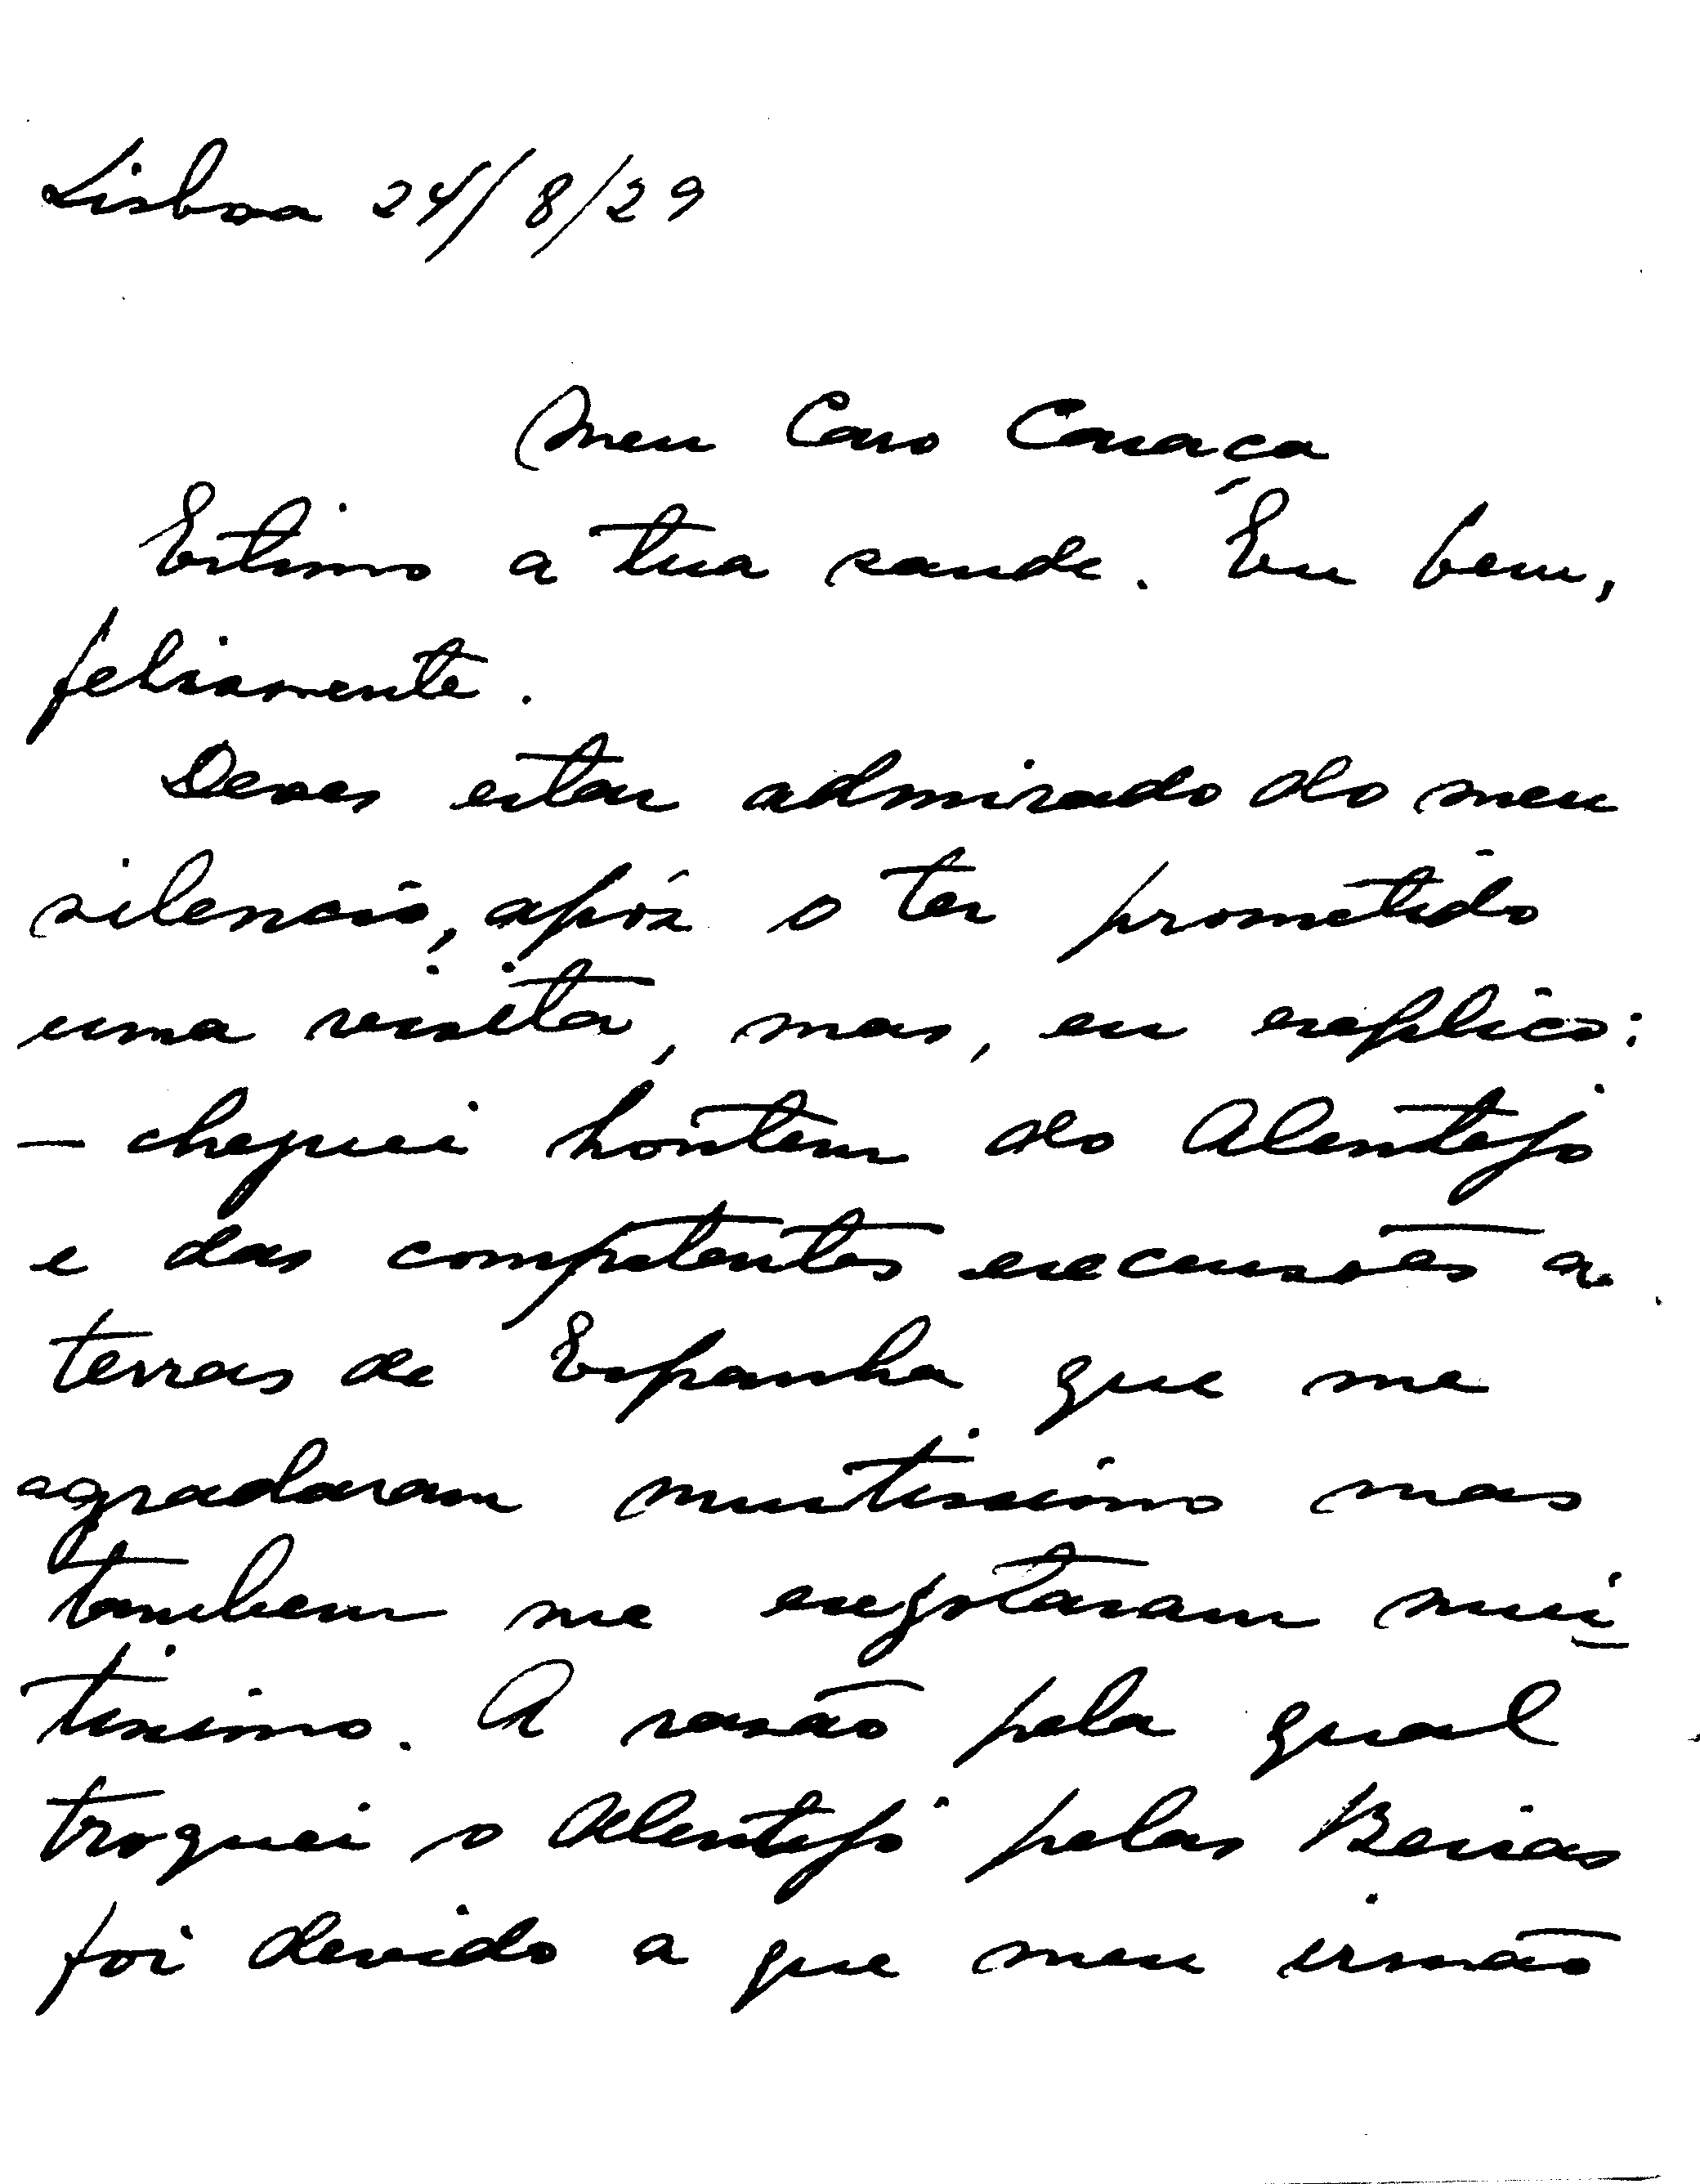 Lisboa 24/8/29
Meu Caro Caraça
Estimo a tua saude. Eu bem,
felismente.
Deves estar admirado do meu
silencio, após o ter prometido
uma visita, mas, eu explico:
— cheguei hontem do Alentejo
e das competentes excursões a
terras de Espanha que me
agradaram muitissimo mas
tambem me exgotaram mui-
tissimo. A rasão pela qual
troquei o Alentejo pelas Beiras
foi devido a que meu irmão